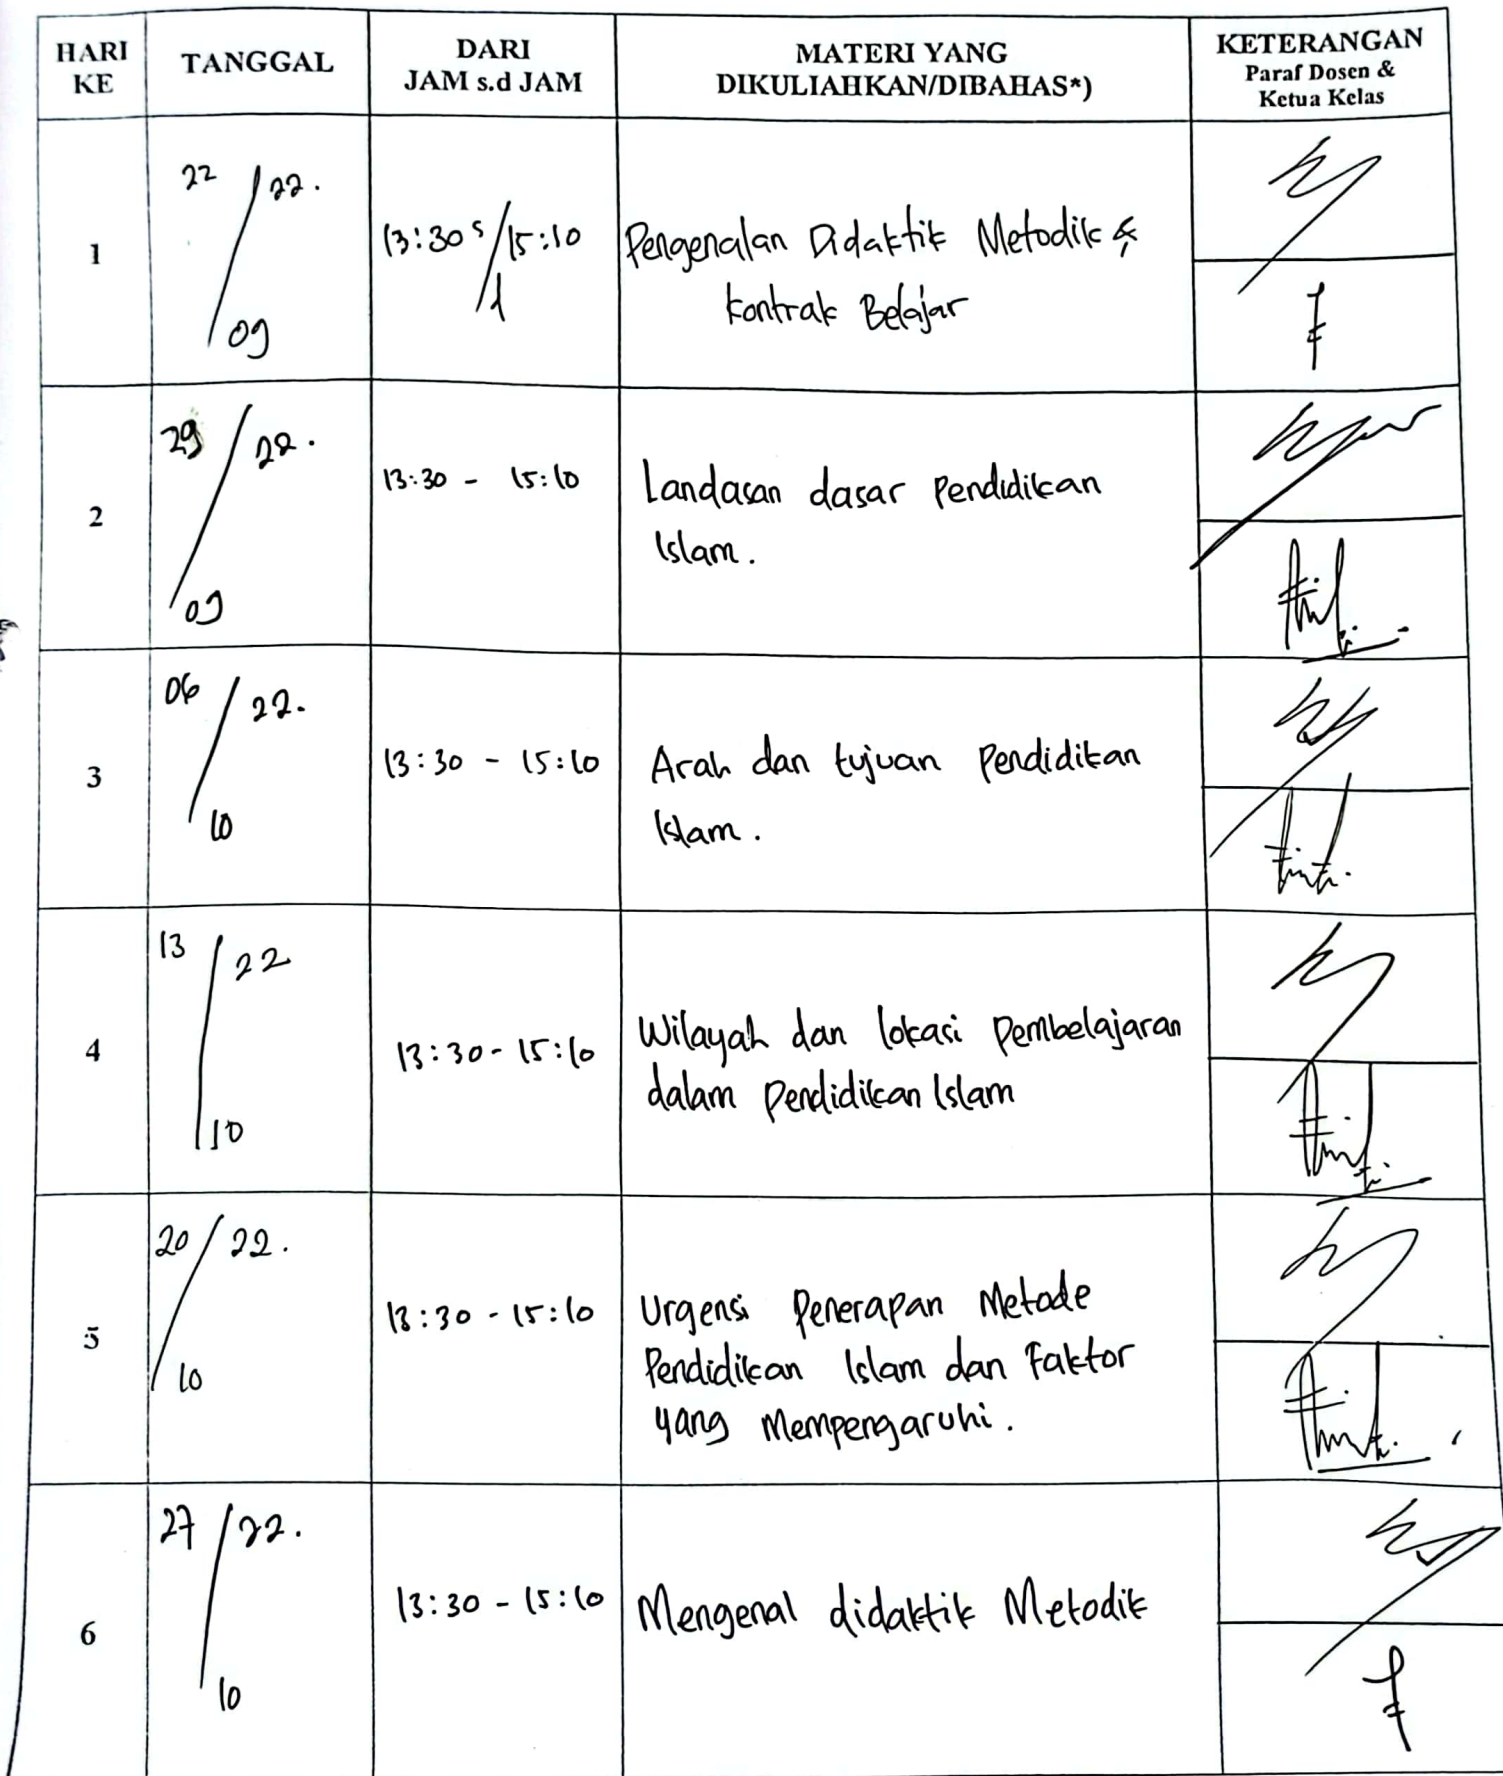 HARI KE
TANGGAL
DARI
JAM s.d JAM
MATERI YANG
DIKULIAHKAN/DIBAHAS*)
KETERANGAN
Paraf Dosen &
Ketua Kelas
1
22 / 22.
09
13:30 s/d 15:10
Pengenalan Didaktik Metodik &
kontrak Belajar
2
29 / 22.
09
13:30 - 15:10
Landasan dasar Pendidikan
Islam.
3
06 / 22.
10
13:30 - 15:10
Arah dan tujuan Pendidikan
Islam.
4
13 / 22
10
13:30 - 15:10
Wilayah dan lokasi Pembelajaran
dalam Pendidikan Islam
5
20 / 22.
10
13:30 - 15:10
Urgensi Penerapan Metode
Pendidikan Islam dan Faktor
yang Mempengaruhi.
6
27 / 22.
10
13:30 - 15:10
Mengenal didaktik Metodik